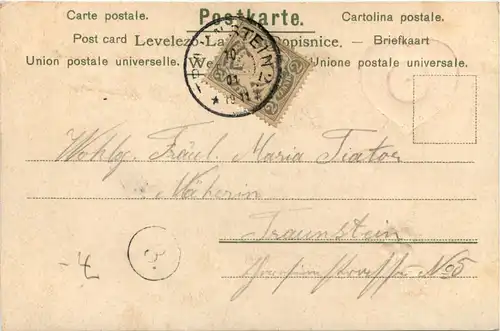 Carte postale. Postkarte. Cartolina postale.
Post card Levelezo-La opisnice. — Briefkaart
Union postale universelle. We Unione postale universale.
Wohlg. Fräul. Maria Fiator
Näherin
Traunstein
No 5
3.